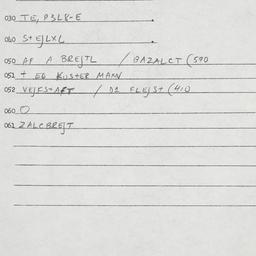 030 TE, P3L8-E
040 S+EJLXL
050 AF A BREJTL / BAZALCT (590
051 + EG KUSTER MANN
052 VEJFS+ART / D1 FLEJS+ (410
060 O
061 ZALCBREJT